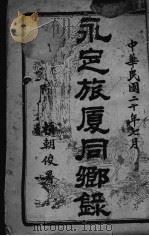 中華民國二十年七月
永定旅厦同鄉錄
朝俊